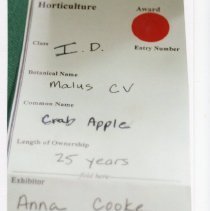 Horticulture Award
Class I.D. Entry Number
Botanical Name
Malus CV
Common Name
Crab Apple
Length of Ownership
25 years
fold here
Exhibitor
Anna Cooke